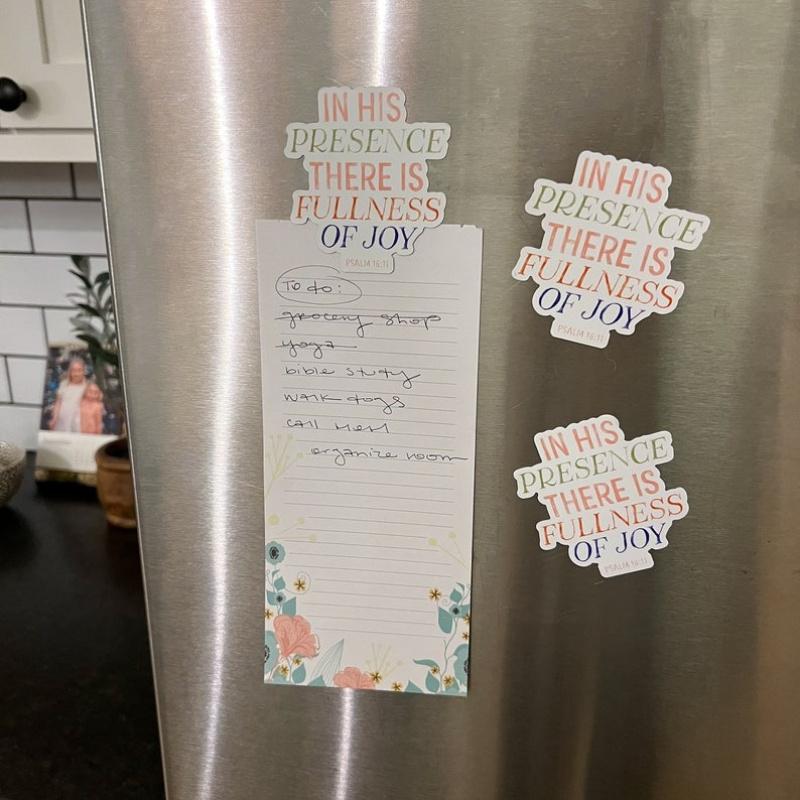 IN HIS
PRESENCE
THERE IS
FULLNESS
OF JOY
PSALM 16:11
To do:
grocery shop
yoga
bible study
walk dogs
call
organize room
IN HIS
PRESENCE
THERE IS
FULLNESS
OF JOY
PSALM 16:11
IN HIS
PRESENCE
THERE IS
FULLNESS
OF JOY
PSALM 16:11